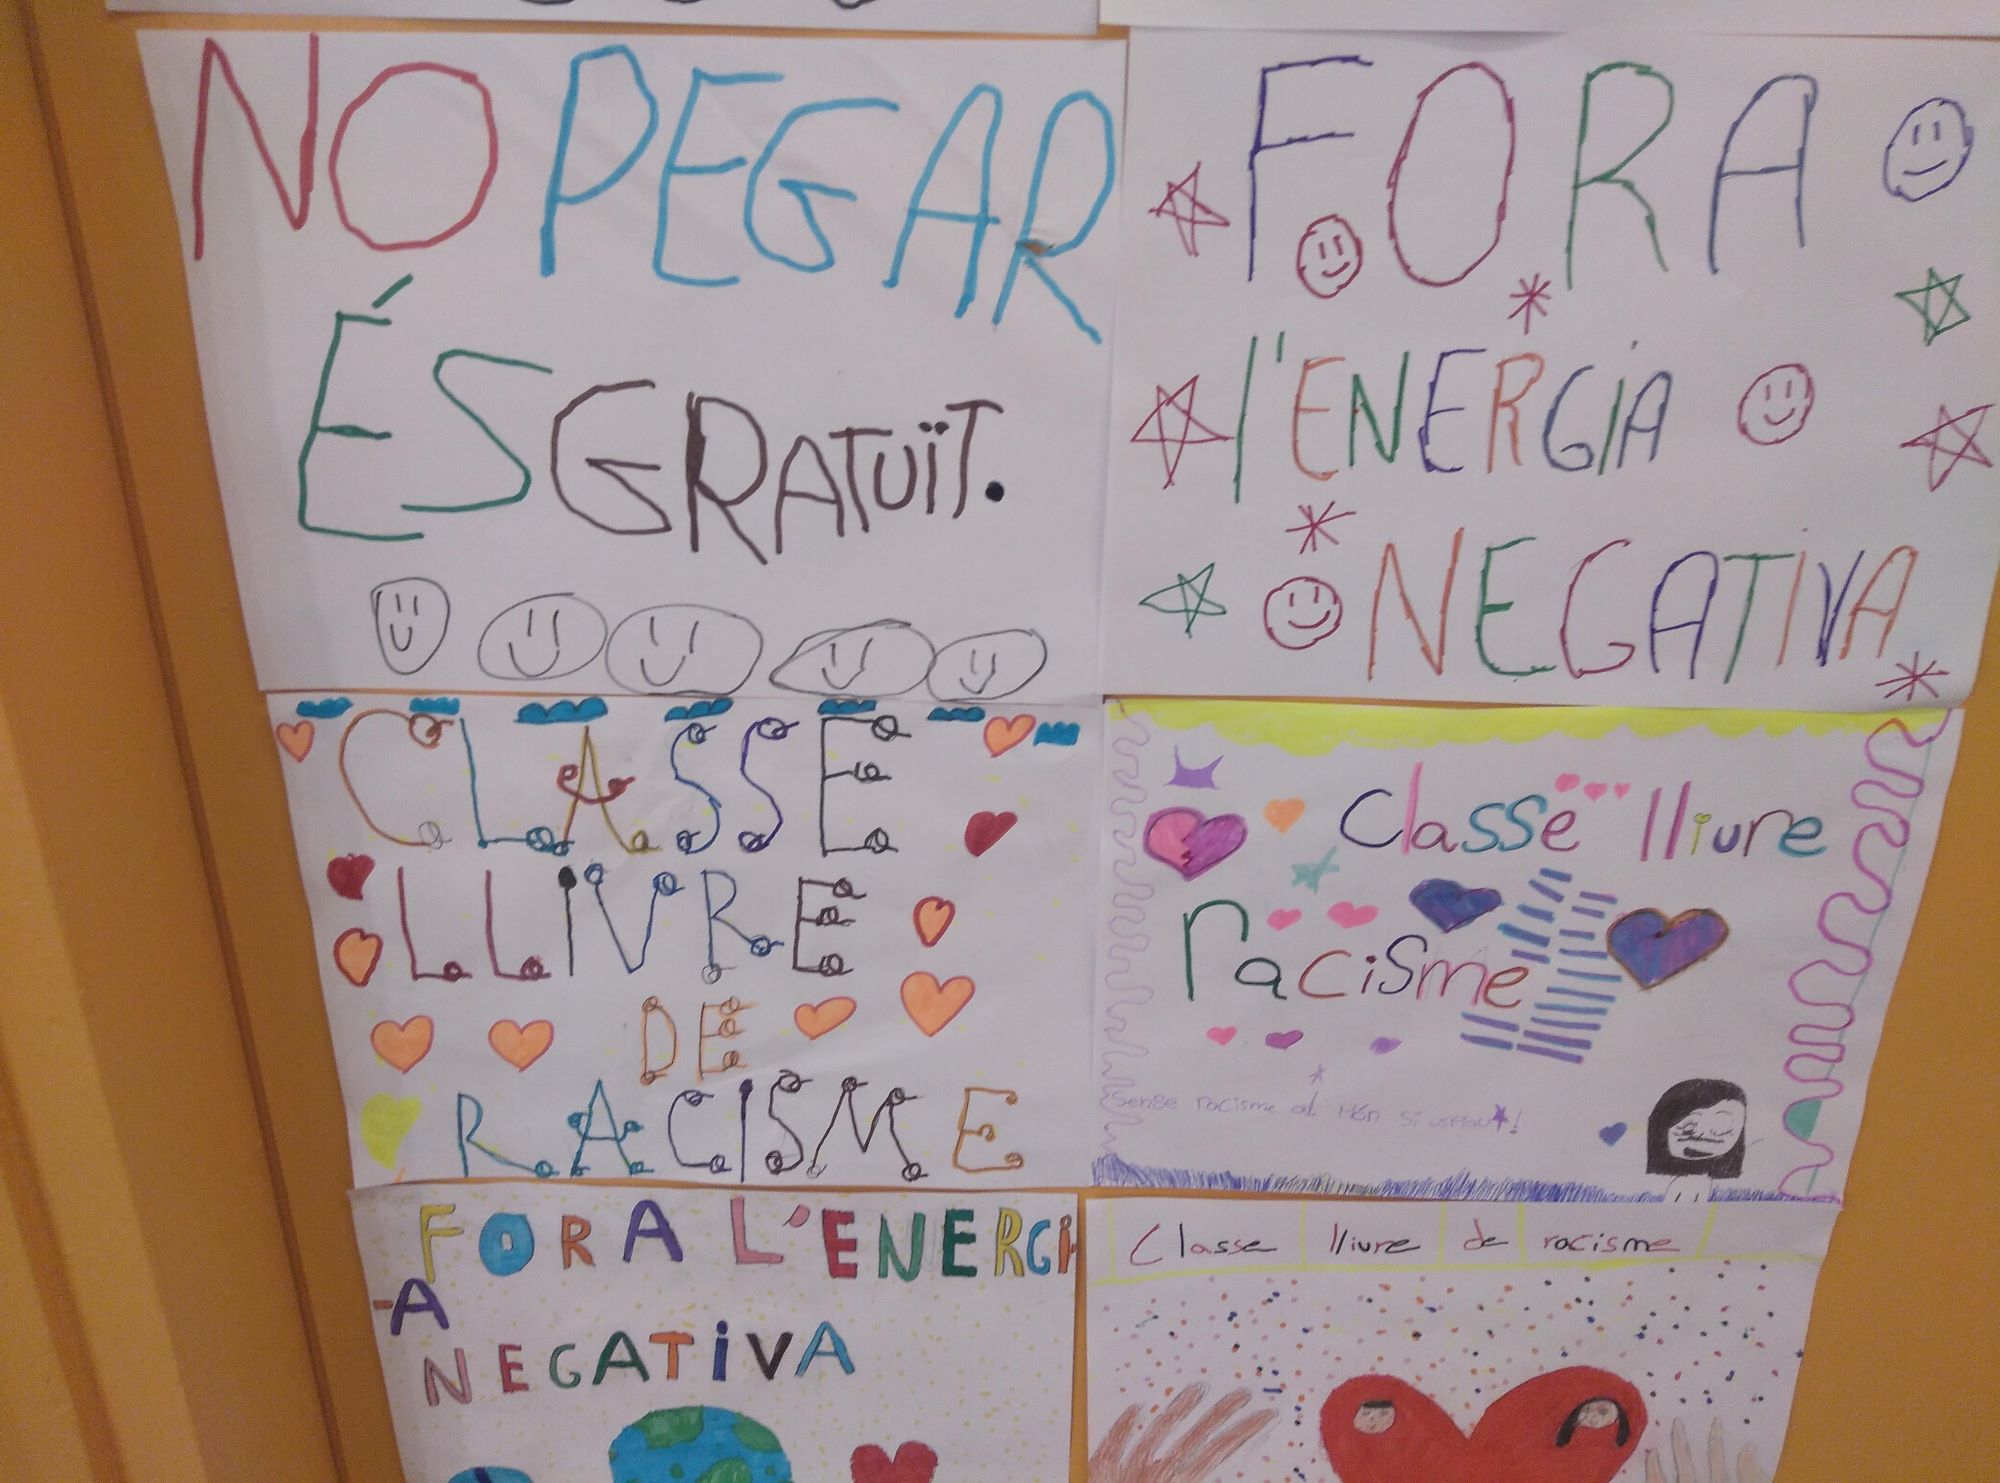 NO PEGAR
ÉS GRATUÏT.
FORA
l'ENERGIA
NEGATIVA
CLASSE
LLIVRE
DE
RACISME
Classe lliure
racisme
sense racisme al món si
FORA L'ENERGI
-A
NEGATIVA
Classe lliure de racisme